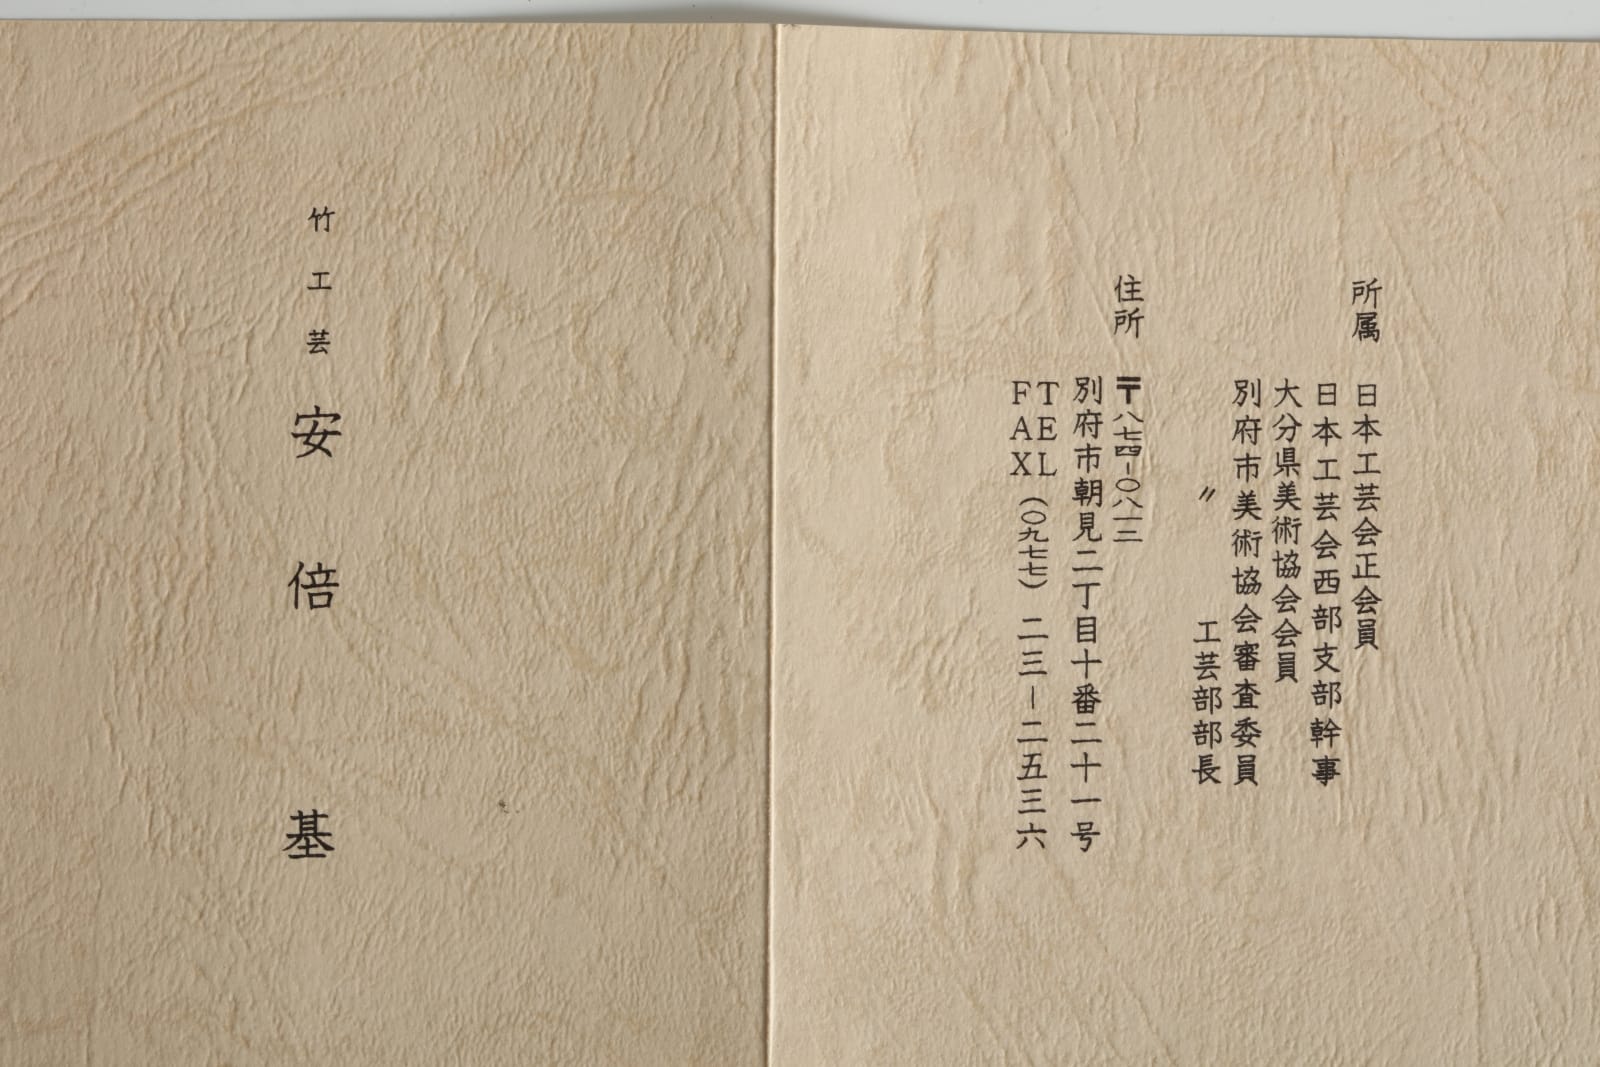 所属 日本工芸会正会員
日本工芸会西部支部幹事
大分県美術協会会員
別府市美術協会審査委員
〃 工芸部部長
住所 〒八七四-〇八一三
別府市朝見二丁目十番二十一号
TEL
FAX (〇九七七) 二三-二五三六
竹工芸 安倍基